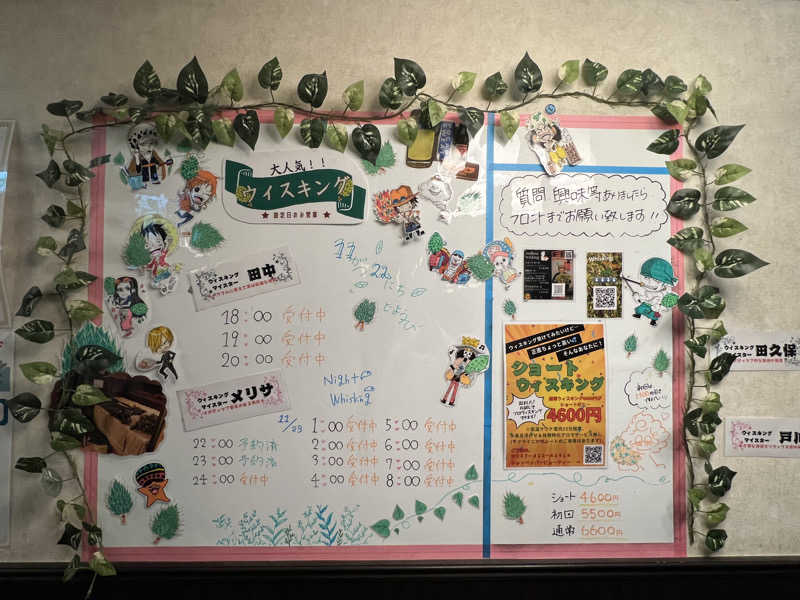 大人気！！
ウィスキング
★ 限定日のみ営業 ★
11が
22にち
どようび
ウィスキング
マイスター 田中
18:00 受付中
19:00 受付中
20:00 受付中
ウィスキング
マイスター メリサ
22:00 予約済
23:00 予約済
24:00 受付中
Night
Whisking
11/23
1:00 受付中 5:00 受付中
2:00 受付中 6:00 受付中
3:00 受付中 7:00 受付中
4:00 受付中 8:00 受付中
質問、興味等ありましたら
フロントまでお願い致します!!
ウィスキング受けてみたいけど…
正直ちょっと高い!?
そんなあなたに！
ショート
ウィスキング
4600円
ショート 4600円
初回 5500円
通常 6600円
ウィスキング
マイスター 田久保
ウィスキング
マイスター